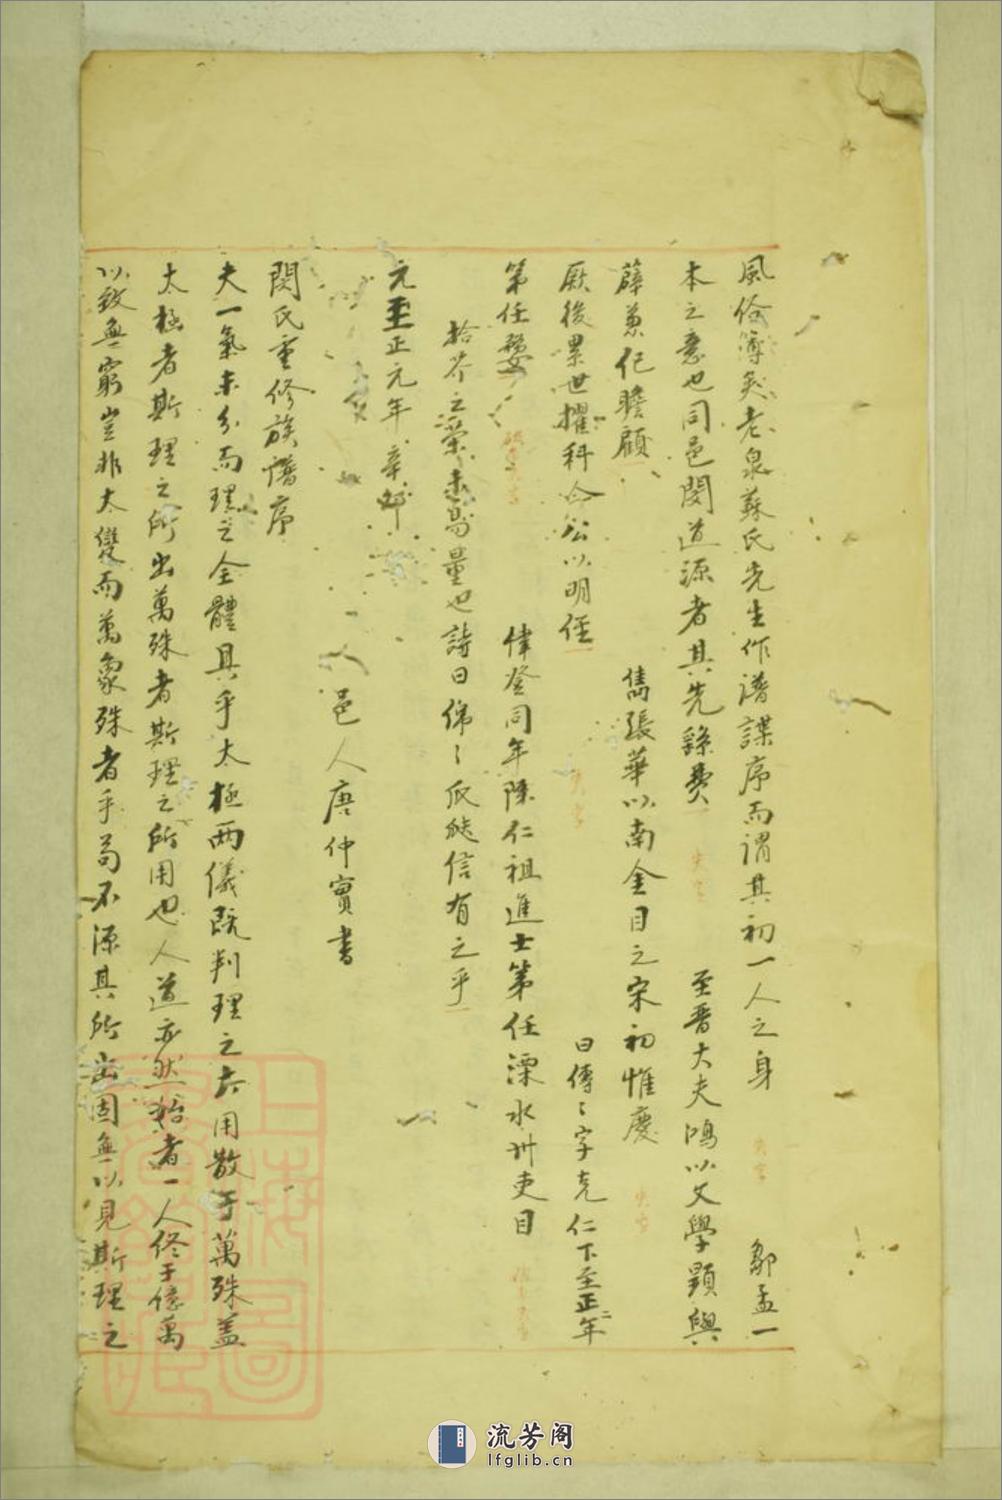 風俗薄矣老泉蘇氏先生作譜諜序而謂其初一人之身 鄒孟一
本之意也同邑閔道源者其先繇費 至晋大夫鴻以文學顕與
薛兼紀瞻顧 雋張華以南金目之宋初惟慶
厥後累世擢科今公以明経 曰傳〻字克仁下至正二年
第任婺 偉登同年陳仁祖進士第任溧水州吏目
拾芥之榮未易量也詩曰緜〻瓜瓞信有之乎
元至正元年辛
邑人唐仲實書
閔氏重修族譜序
夫一氣未分而理之全體具乎太極两儀既判理之六用散于萬殊盖
太極者斯理之所出萬殊者斯理之所用也人道亦然始者一人终于億萬
以致無窮豈非大變而萬象殊者乎苟不源其所出固無以見斯理之
上海圖書館藏
流芳阁
lfglib.cn